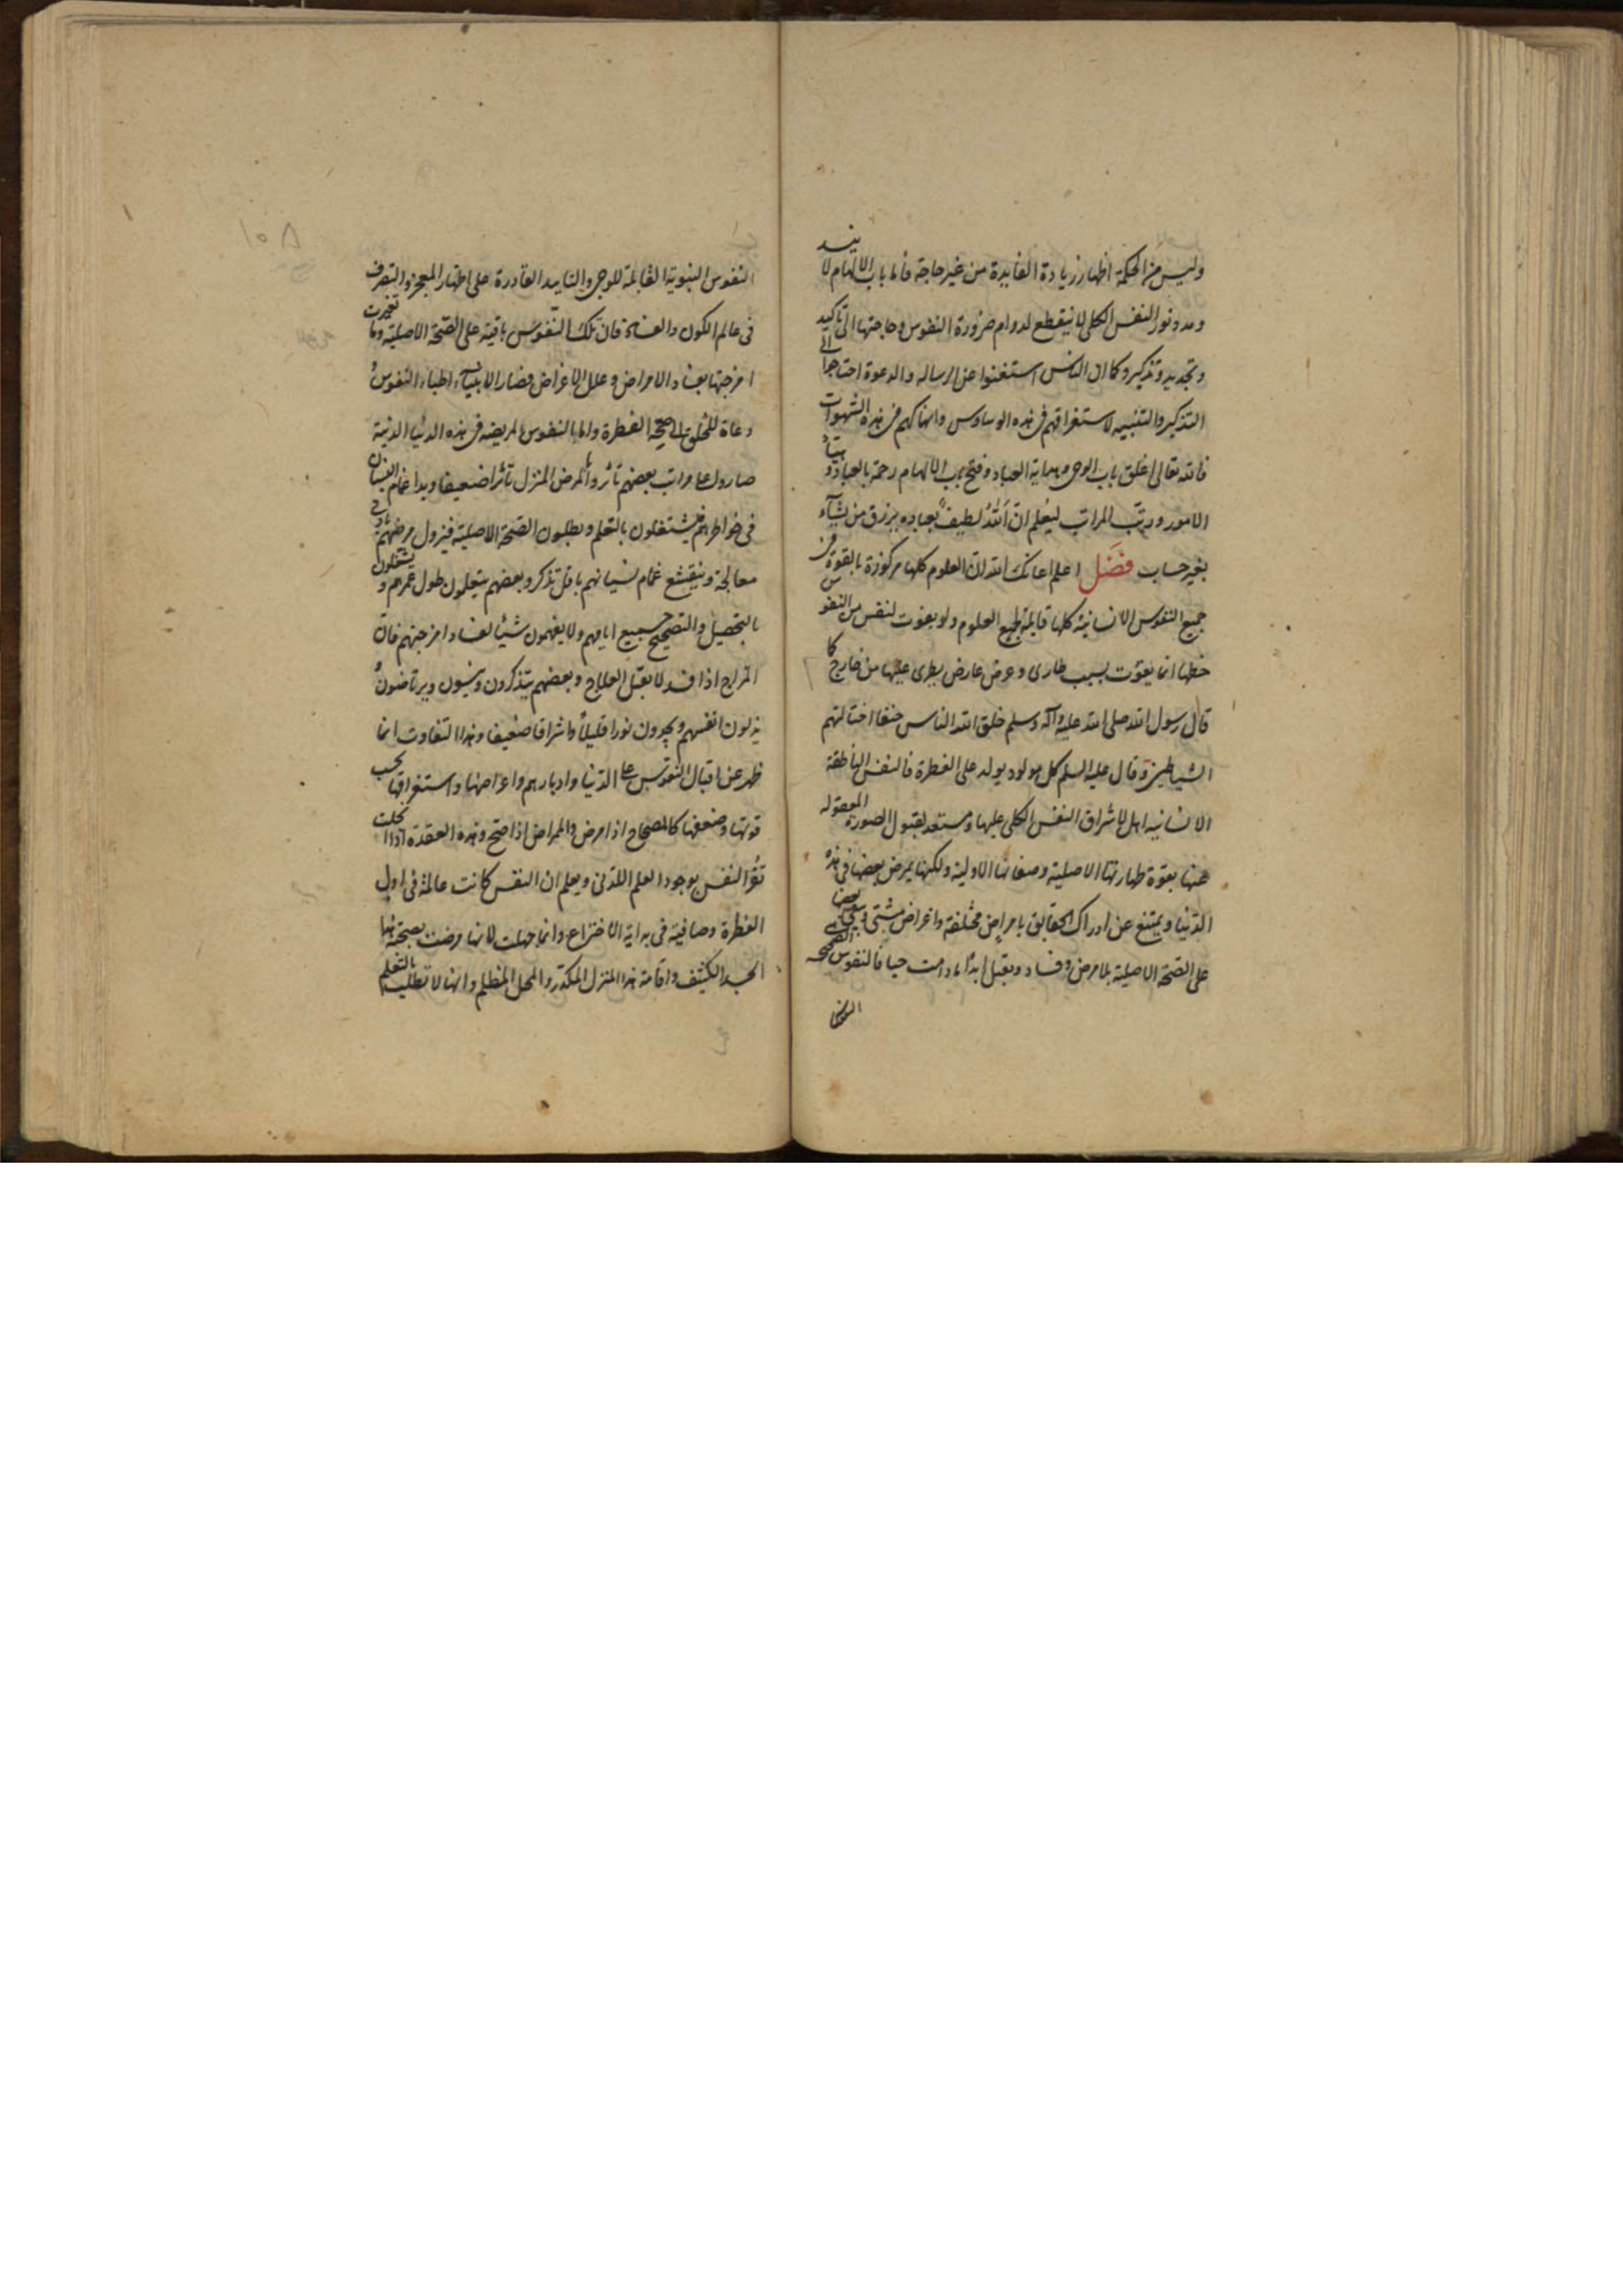 وليس من الحكمة اظهار زيادة الفايدة من غير حاجة فاما باب الالهام لا ينسد
ومدد نور النفس الكلى لا ينقطع لدوام ضرورة النفوس وحاجتها الى تاكيد
وتجديد وتذكير وكما ان الناس استغنوا عن الرساله والدعوة احتاجوا الى
التذكير والتنبيه لاستغراقهم فى هذه الوساوس وانهماكهم فى هذه الشهوات
فالله تعالى اغلق باب الوحى وهداية العباد وفتح باب الالهام رحمة بالعباد وهيّأ
الامور ورتّب المراتب ليعلم انّ اللهُ لطيفٌ بعباده يرزق من يشآء
بغير حساب فصَل اعلم اعانك الله انّ العلوم كلها مركوزة بالقوة فى
جميع النفوس الانسانية كلها قابلة لجميع العلوم ولو يفوت لنفس من النفوس
حظها انما يفوت بسبب طارى وعرض عارض يطرى عليها من خارج كما
قال رسول الله صلى الله عليه وآله وسلم خلق الله الناس حنفا احتالتهم
الشياطين وقال عليه السلم كل مولود يولد على الفطرة فالنفس الناطقة
الانسانيه اهل لاشراق النفس الكلى عليها ومستعد لقبول الصورة المعقوله
عنها بقوة طهارتها الاصلية وصفائها الاولية ولكنها يمرض بعضها فى هذه
الدّنيا ويمتنع عن ادراك الحقايق بامراض مختلفة واعراض شتى ويبقى بعضها
على الصّحة الاصلية بلا مرض وفساد ويقبل ابدًا مادامت حيا فالنفوس الصحيحه
النفوس
النفوس النبوية القابلة للوحى والتاييد القادرة على اظهار المعجزه والتصرف
فى عالم الكون والفساد فان تلك النّفوس باقية على الصّحة الاصلية وما تغيرت
امزجتها بفساد الامراض وعلل الاعراض فصار الانبياء اطباء النفوس و
دعاة للخلق الى صحة الفطرة واما النفوس المريضه فى هذه الدنيا الدنية
صاروا على مراتب بعضهم تاثروا بمرض المنزل تاثرا ضعيفا وبدا غمام النسيان
فى خواطرهم فيشتغلون بالتعلم ويطلبون الصّحة الاصلية فيزول مرضهم بادنى
معالجة وينقشع غمام نسيانهم باقل تذكر وبعضهم يتعلمون طول عمرهم و يشتغلون
بالتحصيل والتصحيح جميع ايامهم ولا يفهمون شيئا لفساد امزجتهم فانّ
المزاج اذا فسد لا يقبل العلاج وبعضهم يتذكرون وينسون ويرتاضون و
يذلون انفسهم ويجدون نورا قليلاً واشراقا ضعيفا وهذا التفاوت انما
ظهر عن اقبال النفوس على الدّنيا وادبارهم واعراضها واستغراقها بحسب
قوتها وضعفها كالصحاح اذا مرض والمراض اذا صحّ وهذه العقدة اذا انحلت
تقرّ النفس بوجود العلم اللدنى ويعلم ان النفس كانت عالمة فى اول
الفطرة وصافية فى بداية الاختراع وانما جهلت لانها مرضت بصحبة هذا
الجسد الكثيف واقامة هذا المنزل المكدّر والمحل المظلم وانها لا تطلب بالتعلم